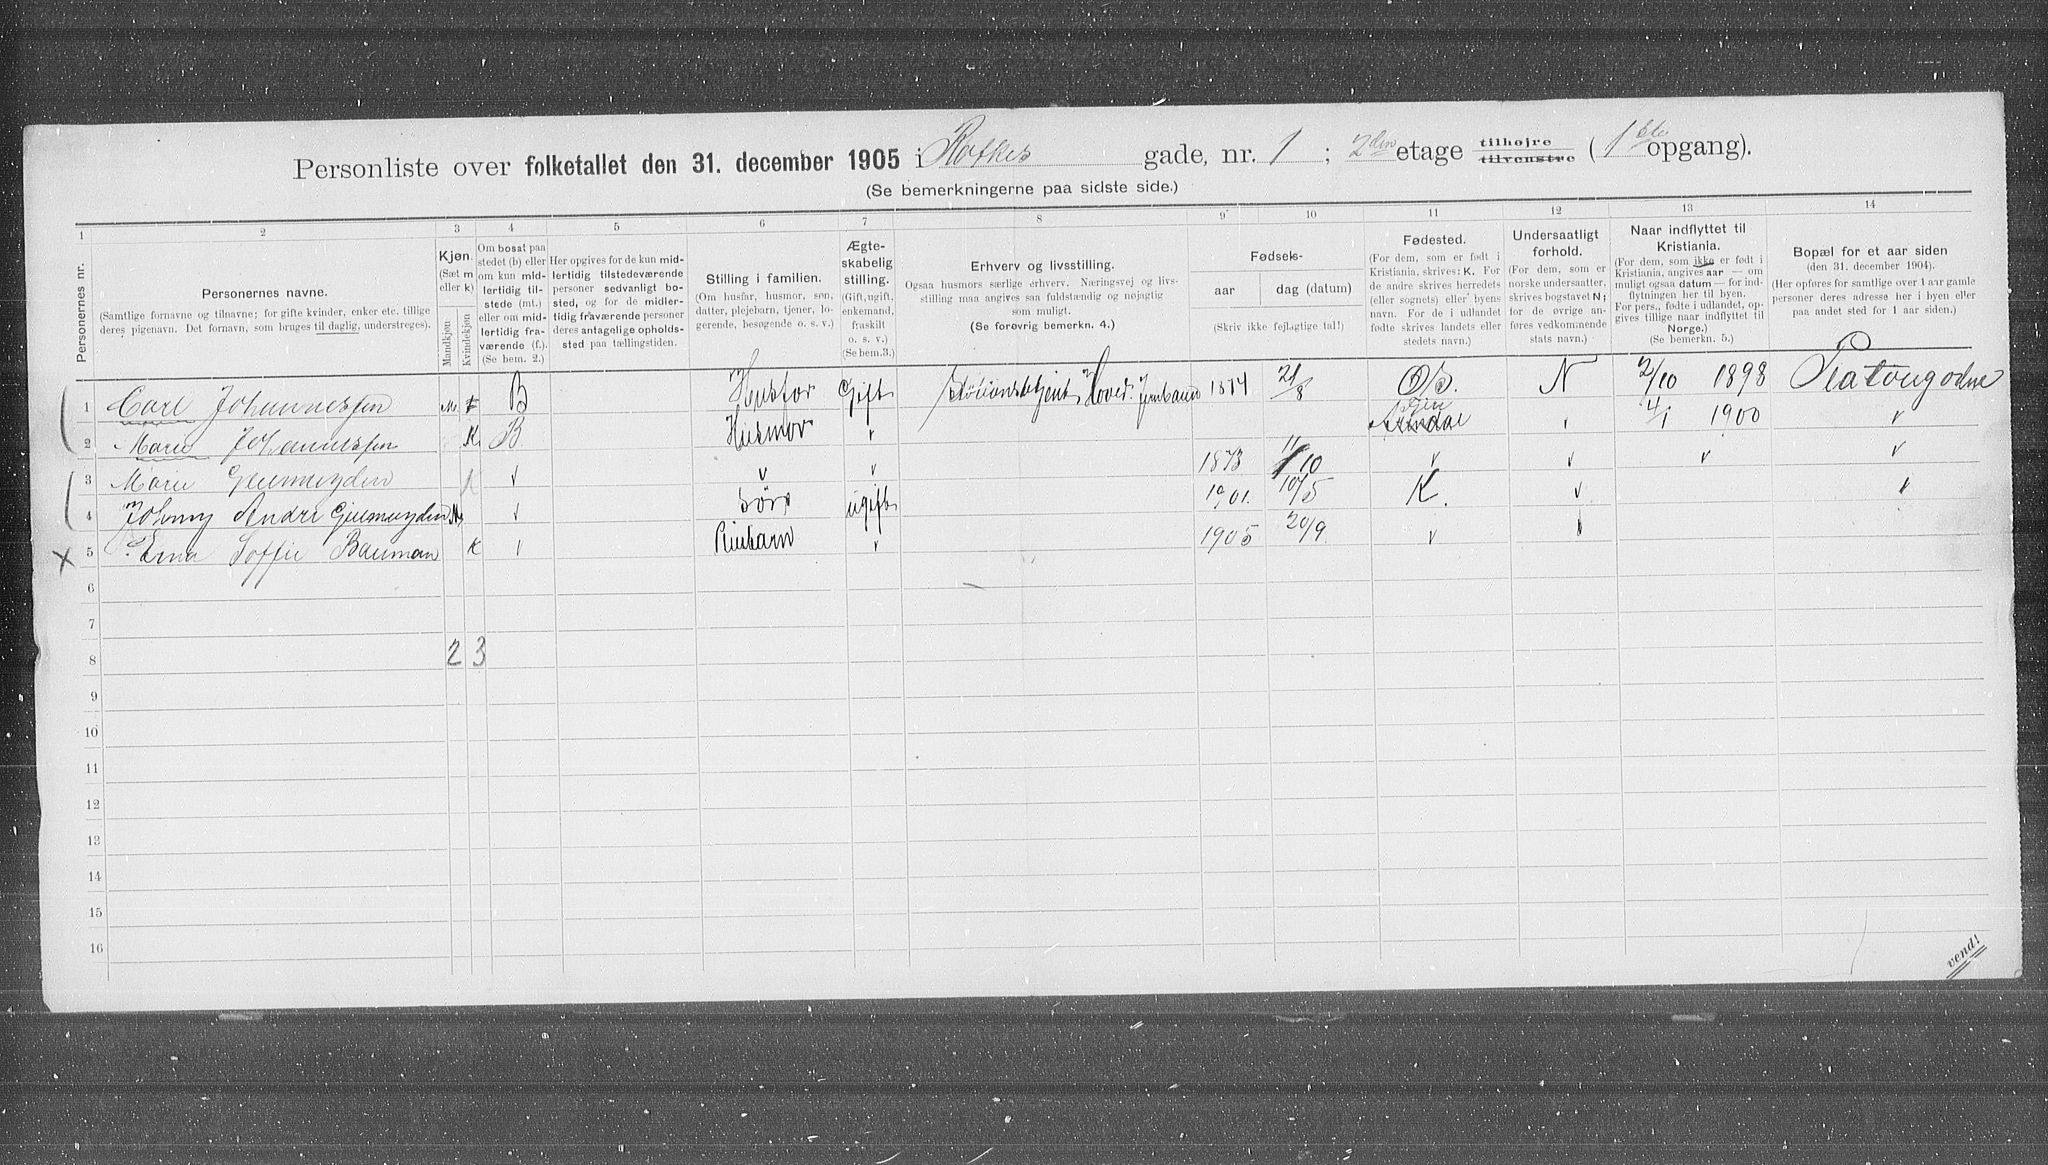 Personliste over folketallet den 31. december 1905 i Rathkes gade, nr. 1 ; 2den etage tilhøjre tilvenstre ( 1ste opgang).
(Se bemerkningerne paa sidste side.)
1 2 3 4 5 6 7 8 9 10 11 12 13 14
Personernes nr.
Personernes navne.
(Samtlige fornavne og tilnavne; for gifte kvinder, enker etc. tillige deres pigenavn. Det fornavn, som bruges til daglig, understreges).
Kjøn.
(Sæt m eller k)
Mandkjøn
Kvindekjøn
Om bosat paa stedet (b) eller om kun midlertidig tilstede (mt.) eller om midlertidig fraværende (f.). (Se bem. 2.)
Her opgives for de kun midlertidig tilstedeværende personer sedvanlig bosted, og for de midlertidig fraværende personer deres antagelige opholdssted paa tællingstiden.
Stilling i familien.
(Om husfar, husmor, søn, datter, plejebarn, tjener, logerende, besøgende o. s. v.)
Ægteskabelig stilling.
(Gift, ugift, enkemand, fraskilt o. s. v.)
(Se bem. 3.)
Erhverv og livsstilling.
Ogsaa husmors særlige erhverv. Næringsvej og livsstilling maa angives saa fuldstændig og nøjagtig som muligt.
(Se forøvrig bemerkn. 4.)
Fødsels-
aar
dag (datum)
(Skriv ikke fejlagtige tal!)
Fødested.
(For dem, som er født i Kristiania, skrives: K. For de andre skrives herredets (eller sognets) eller byens navn. For de i udlandet fødte skrives landets eller stedets navn.)
Undersaatligt forhold.
(For dem, som er norske undersaatter, skrives bogstavet N; for de øvrige anføres vedkommende stats navn.)
Naar indflyttet til Kristiania.
(For dem, som ikke er født i Kristiania, angives aar — om muligt ogsaa datum — for indflytningen her til byen. For pers., fødte i udlandet, opgives tillige naar indflyttet til Norge.)
(Se bemerkn. 5.)
Bopæl for et aar siden
(den 31. december 1904).
(Her opføres for samtlige over 1 aar gamle personer deres adresse her i byen eller paa andet sted for 1 aar siden.)
1 Carl Johannessen M. B Husfar Gift Hoved. Jernbanen 1874 21/8 N 2/10 1898
2 Marie Johannessen K B Husmor v v 4/1 1900 v
3 Marie Gjermundsen K v v v 1873 11/10 v v v v
4 Johnny Andre Gjermundsen M v Søn ugift 1901. 10/5 K. v v
X 5 Erna Soffie Bauman K v Pleiebarn v 1905 20/9 v v
6
7
8 2 3
9
10
11
12
13
14
15
16
vend!